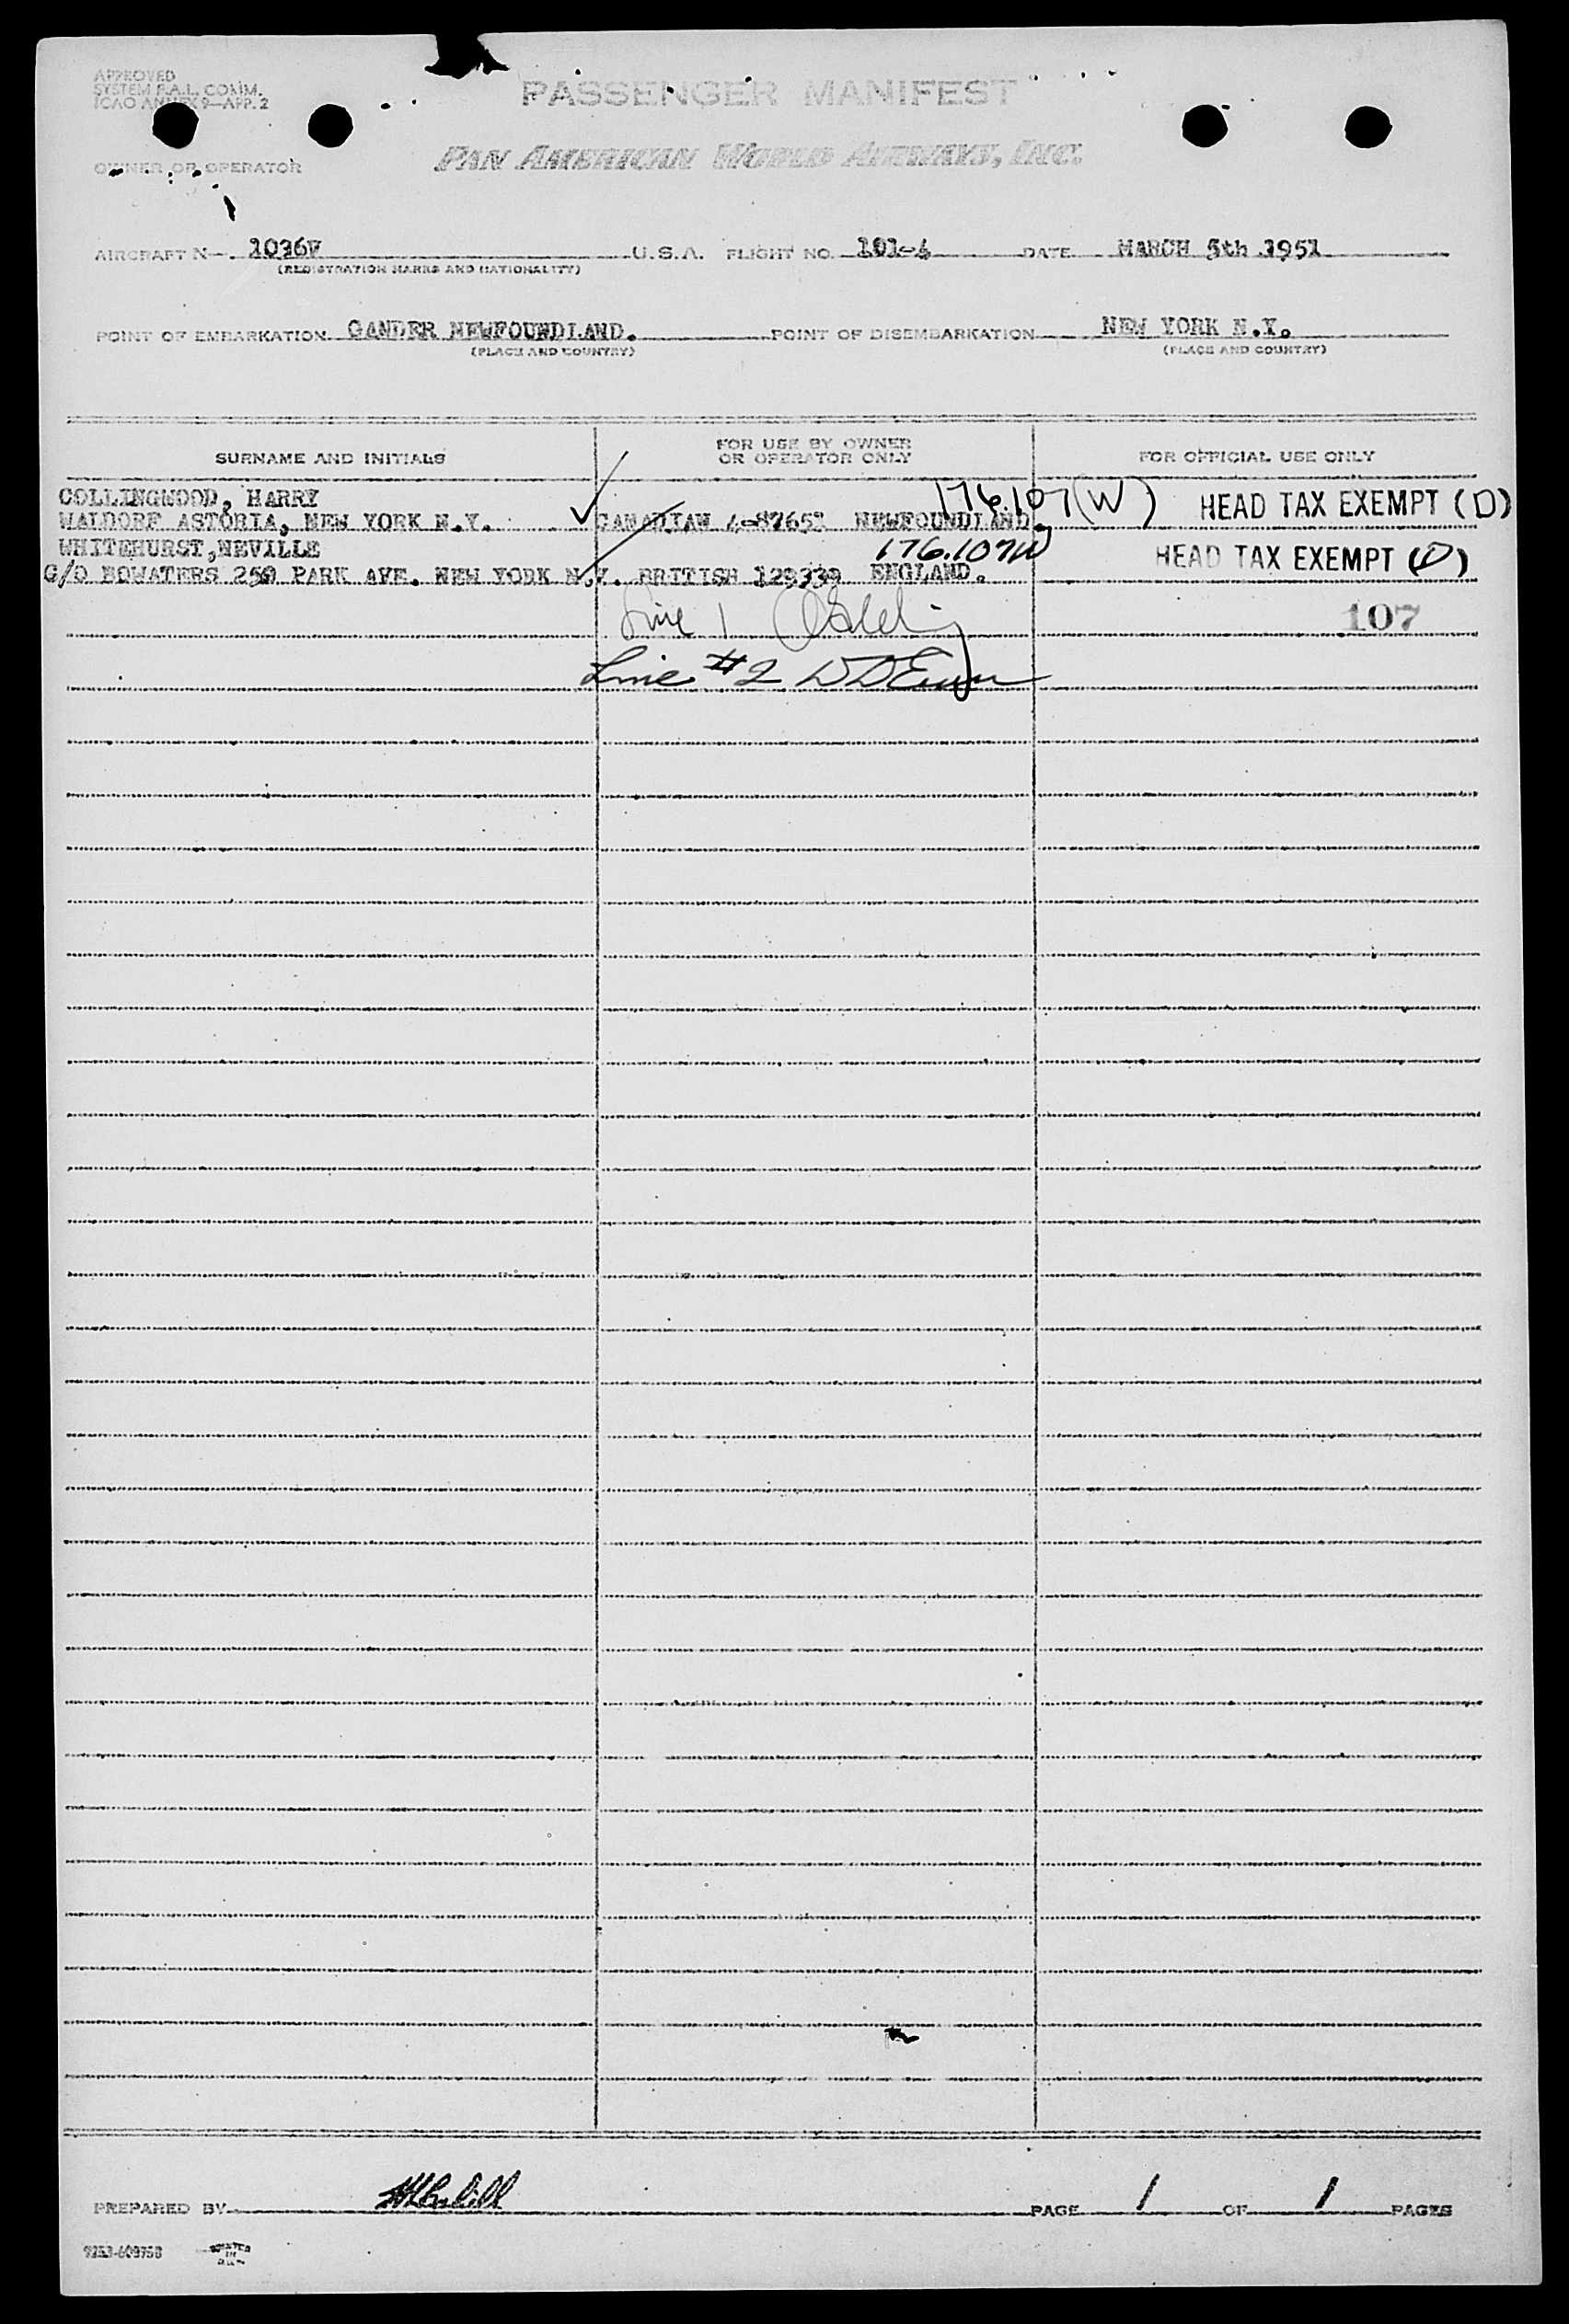 APPROVED
SYSTEM F.A.L. COMM.
ICAO ANNEX 9—APP. 2
PASSENGER MANIFEST
OWNER OR OPERATOR
PAN AMERICAN WORLD AIRWAYS, INC.
AIRCRAFT N— 1036V U.S.A. FLIGHT NO. 101-4 DATE MARCH 5th 1951
(REGISTRATION MARKS AND NATIONALITY)
POINT OF EMBARKATION GANDER NEWFOUNDLAND. POINT OF DISEMBARKATION NEW YORK N.Y.
(PLACE AND COUNTRY) (PLACE AND COUNTRY)
SURNAME AND INITIALS FOR USE BY OWNER OR OPERATOR ONLY FOR OFFICIAL USE ONLY
COLLINGWOOD, HARRY 176.107(W) HEAD TAX EXEMPT (D)
WALDORF ASTORIA, NEW YORK N.Y. CANADIAN 4-87651 NEWFOUNDLAND.
WHITEHURST,NEVILLE 176.107W HEAD TAX EXEMPT (D)
C/O BOWATERS 250 PARK AVE. NEW YORK N.Y. BRITISH 129339 ENGLAND.
Line 1 107
Line #2
PREPARED BY PAGE 1 OF 1 PAGES
PRINTED
IN